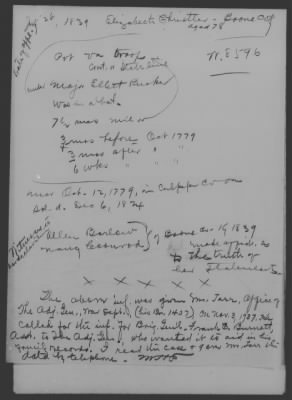 July 28, 1839 Elizabeth Christler - Boone Co
aged 78
Date of Appl.
W.8596
Pvt Va troops
Cont. & State Line
under Major Elliott Rucker
Was in a bat.
7½ mos mil or
3 mos before Oct 1779
+ 3 mos after " "
6 wks " " "
mar Oct. 12, 1779, in Culpeper Co
Sol. d. Dec 6, 1824
Witnesses
Allen Barlow
Nancy
of Boone Co 1839
made appl. as
to the truth of
her statements
X X X X X
The above inf. was given Mr. Tarr, Office of
The Adj. Gen., War Dept., on Nov. 3, 1927. He
called for this inf. for Brig. Genl. Frank C. Burnett,
Asst. to the Adj. Genl., who wanted it to aid in his
family records. I read the case & gave Mr. Tarr this
data by telephone.